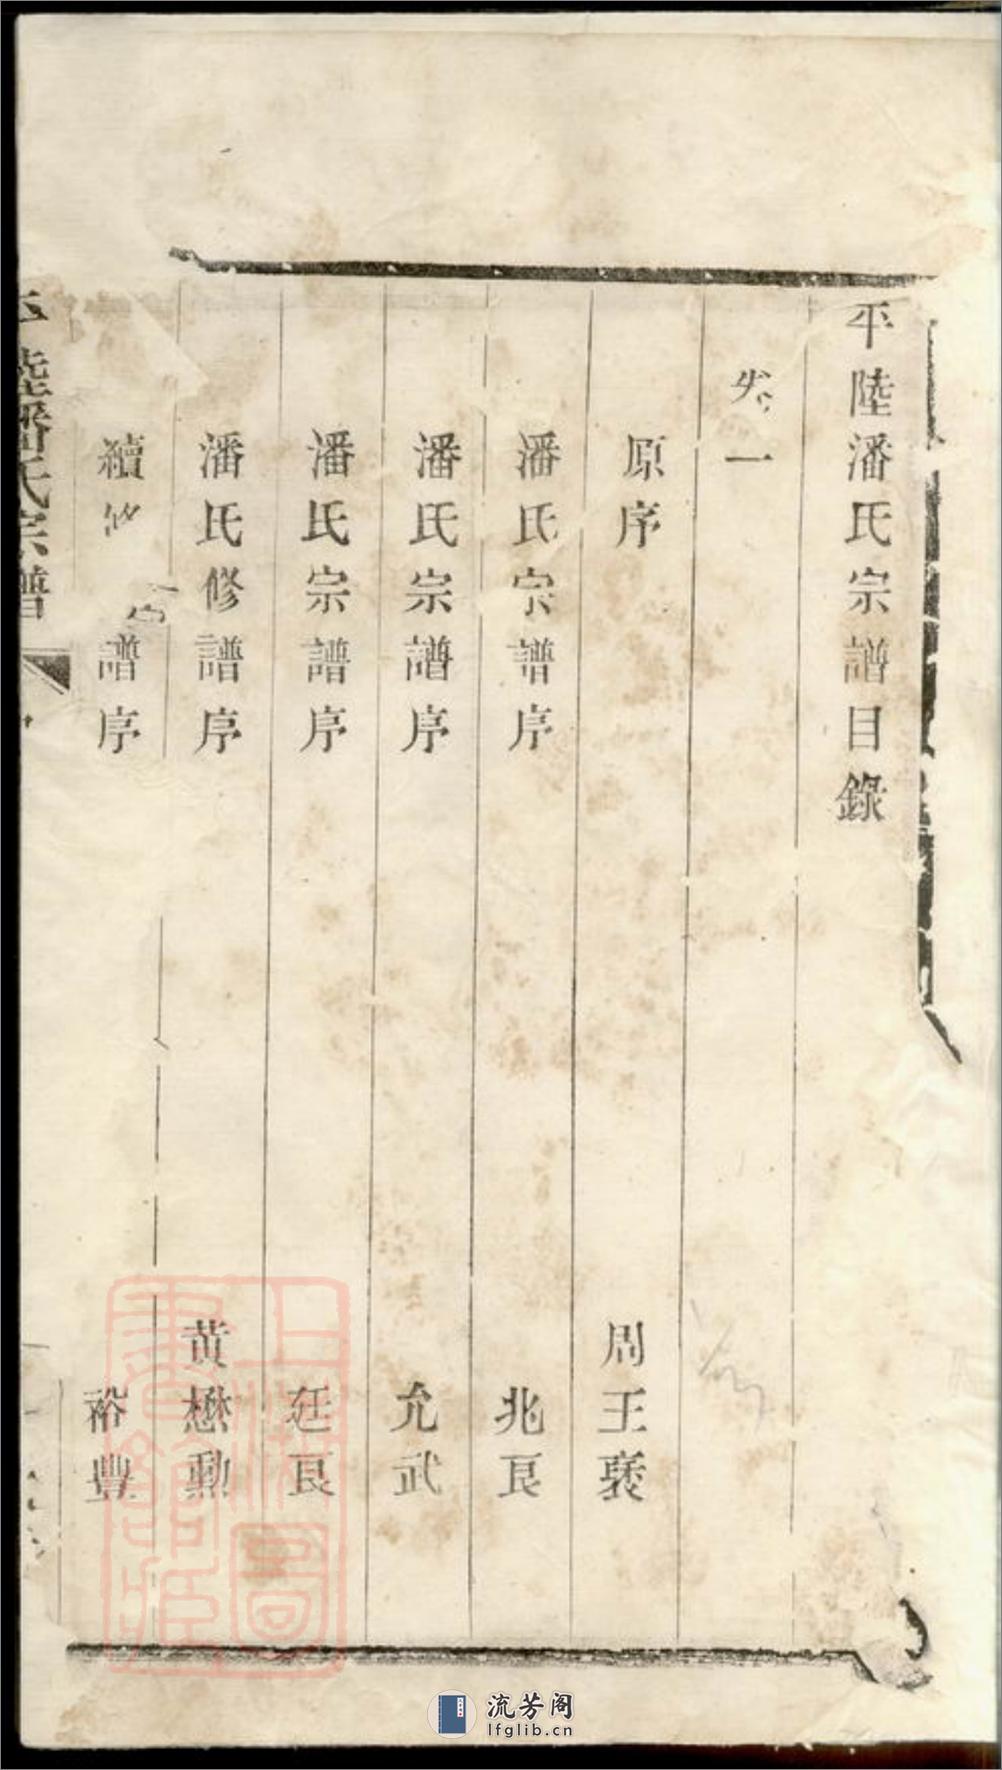 平陸潘氏宗譜目錄
卷一
原序 周王褒
潘氏宗譜序 兆良
潘氏宗譜序 允武
潘氏宗譜序 廷良
潘氏修譜序 黃懋勳
續修宗譜序 裕豐
平陸潘氏宗譜
上海圖書館藏
流芳阁
lfglib.cn